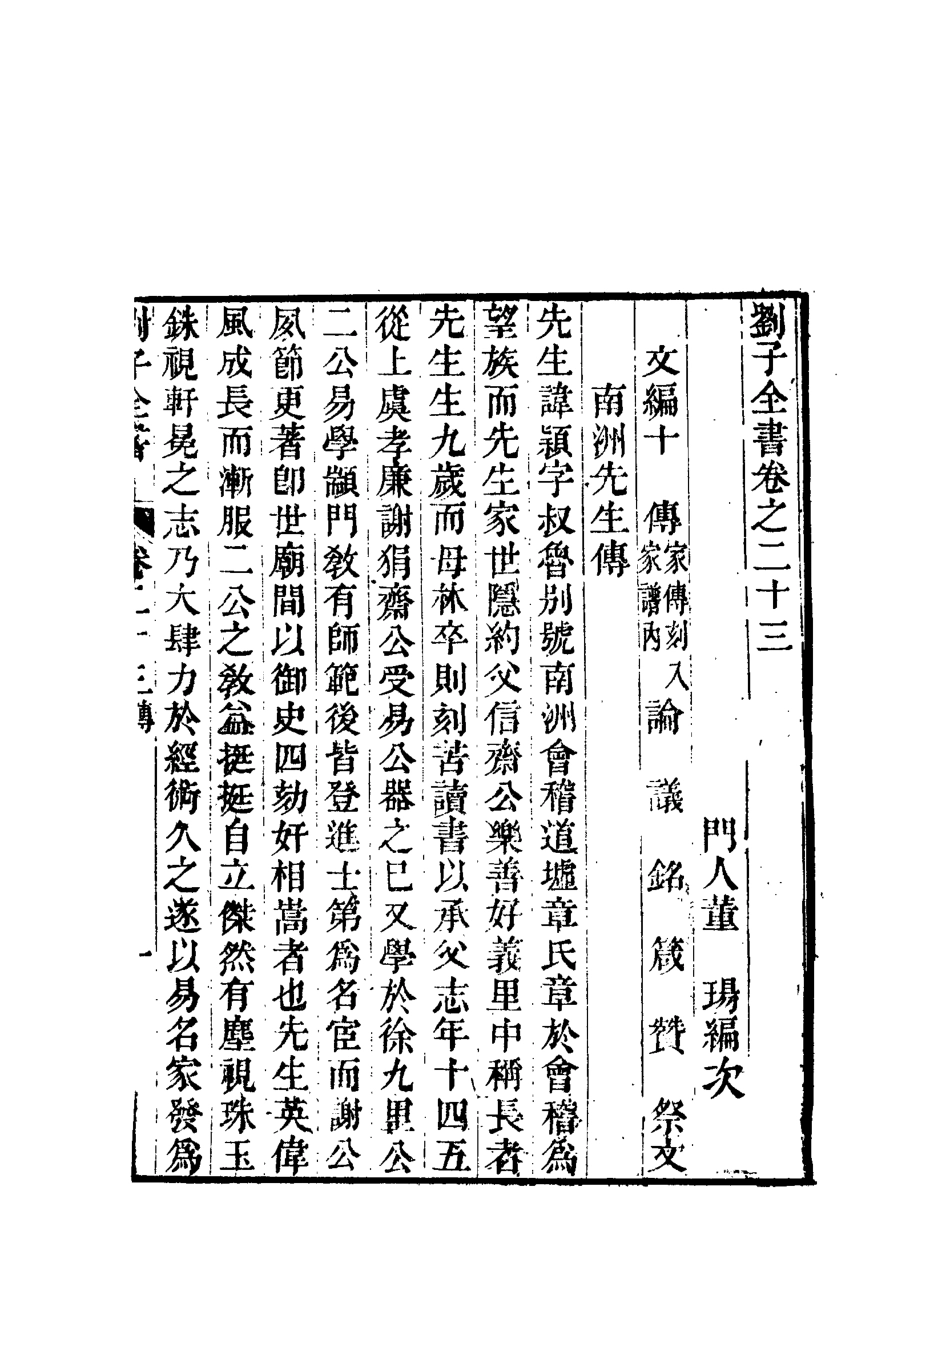 劉子全書卷之二十三
門人董　瑒編次
文編十　傳家傳刻入家譜內　論　議　銘　箴　贊　祭文
南洲先生傳
先生諱穎字叔魯別號南洲會稽道墟章氏章於會稽爲
望族而先生家世隱約父信齋公樂善好義里中稱長者
先生生九歲而母林卒則刻苦讀書以承父志年十四五
從上虞孝廉謝狷齋公受易公器之已又學於徐九皐公
二公易學顓門教有師範後皆登進士第爲名宦而謝公
風節更著卽世廟間以御史四劾奸相嵩者也先生英偉
風成長而漸服二公之敎益挺挺自立傑然有塵視珠玉
銖視軒冕之志乃大肆力於經術久之遂以易名家發爲
劉子全書　卷二十三傳　一